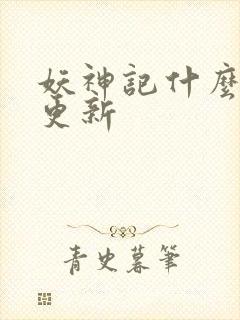 妖神記什麼
更新
青史暮筆